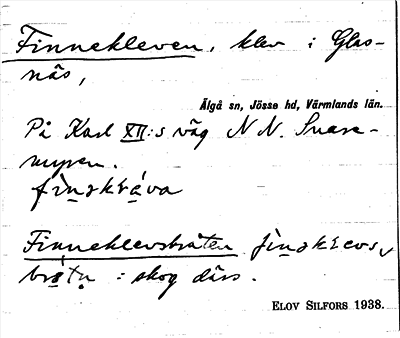 Finnekleven, klev i Glas-
näs,
Älgå sn, Jösse hd, Värmlands län.
På Karl XII:s väg N N. Snare-
myren.
fìnəkləva
Finneklevsbråten fìnəklevs
brǻtn : skog därs.
ELOV SILFORS 1938.